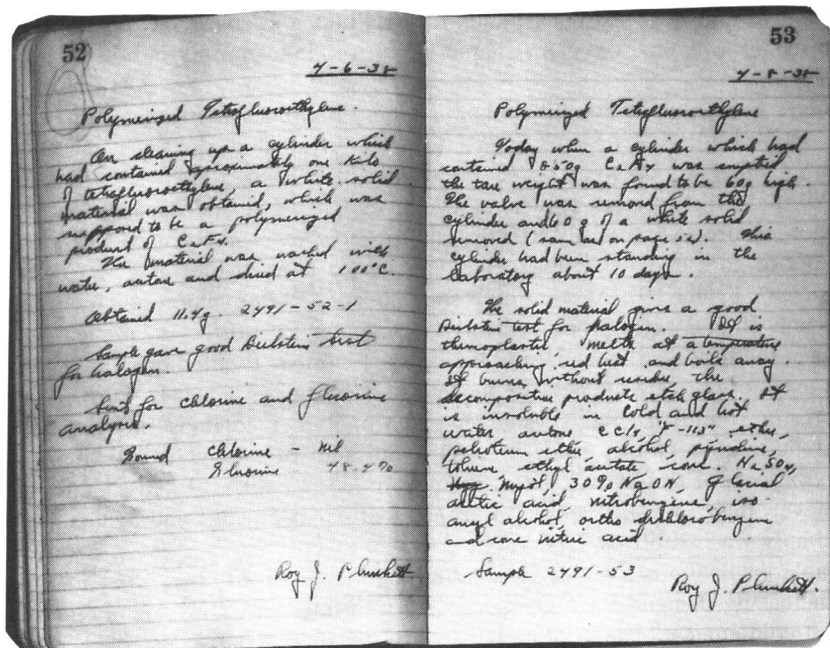 52
4-6-38
Polymerized Tetrafluoroethylene.
On cleaning up a cylinder which
had contained approximately one kilo
of tetrafluoroethylene, a white solid
material was obtained, which was
supposed to be a polymerized
product of C2F4.
The material was washed with
water, acetone and dried at 100°C.
Obtained 11.4g. 2491-52-1
Sample gave good Beilstein test
for halogen.
Sent for chlorine and fluorine
analysis.
Found chlorine - nil
Fluorine 48.4%
Roy J. Plunkett
53
4-8-38
Polymerized Tetrafluoroethylene
Today when a cylinder which had
contained 850g C2F4 was emptied
the tare weight was found to be 60g high.
The valve was removed from the
cylinder and 60 g of a white solid
removed (same as on page 52). This
cylinder had been standing in the
laboratory about 10 days.
The solid material gives a good
Beilstein test for halogen. It is
thermoplastic, melts at a temperature
approaching red heat and boils away.
It burns without residue, the
decomposition products etch glass. It
is insoluble in cold and hot
water acetone CCl4, "F-113" ether,
petroleum ether alcohol, pyridine,
toluene ethyl acetate conc. H2SO4,
30% NaOH, glacial
acetic acid nitrobenzene, iso
amyl alcohol, ortho dichlorobenzene
and conc nitric acid.
Sample 2491-53
Roy J. Plunkett.